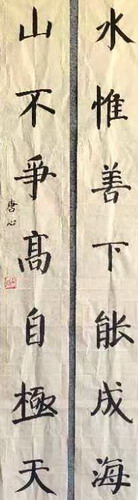 水惟善下能成海
山不爭高自極天
唐心